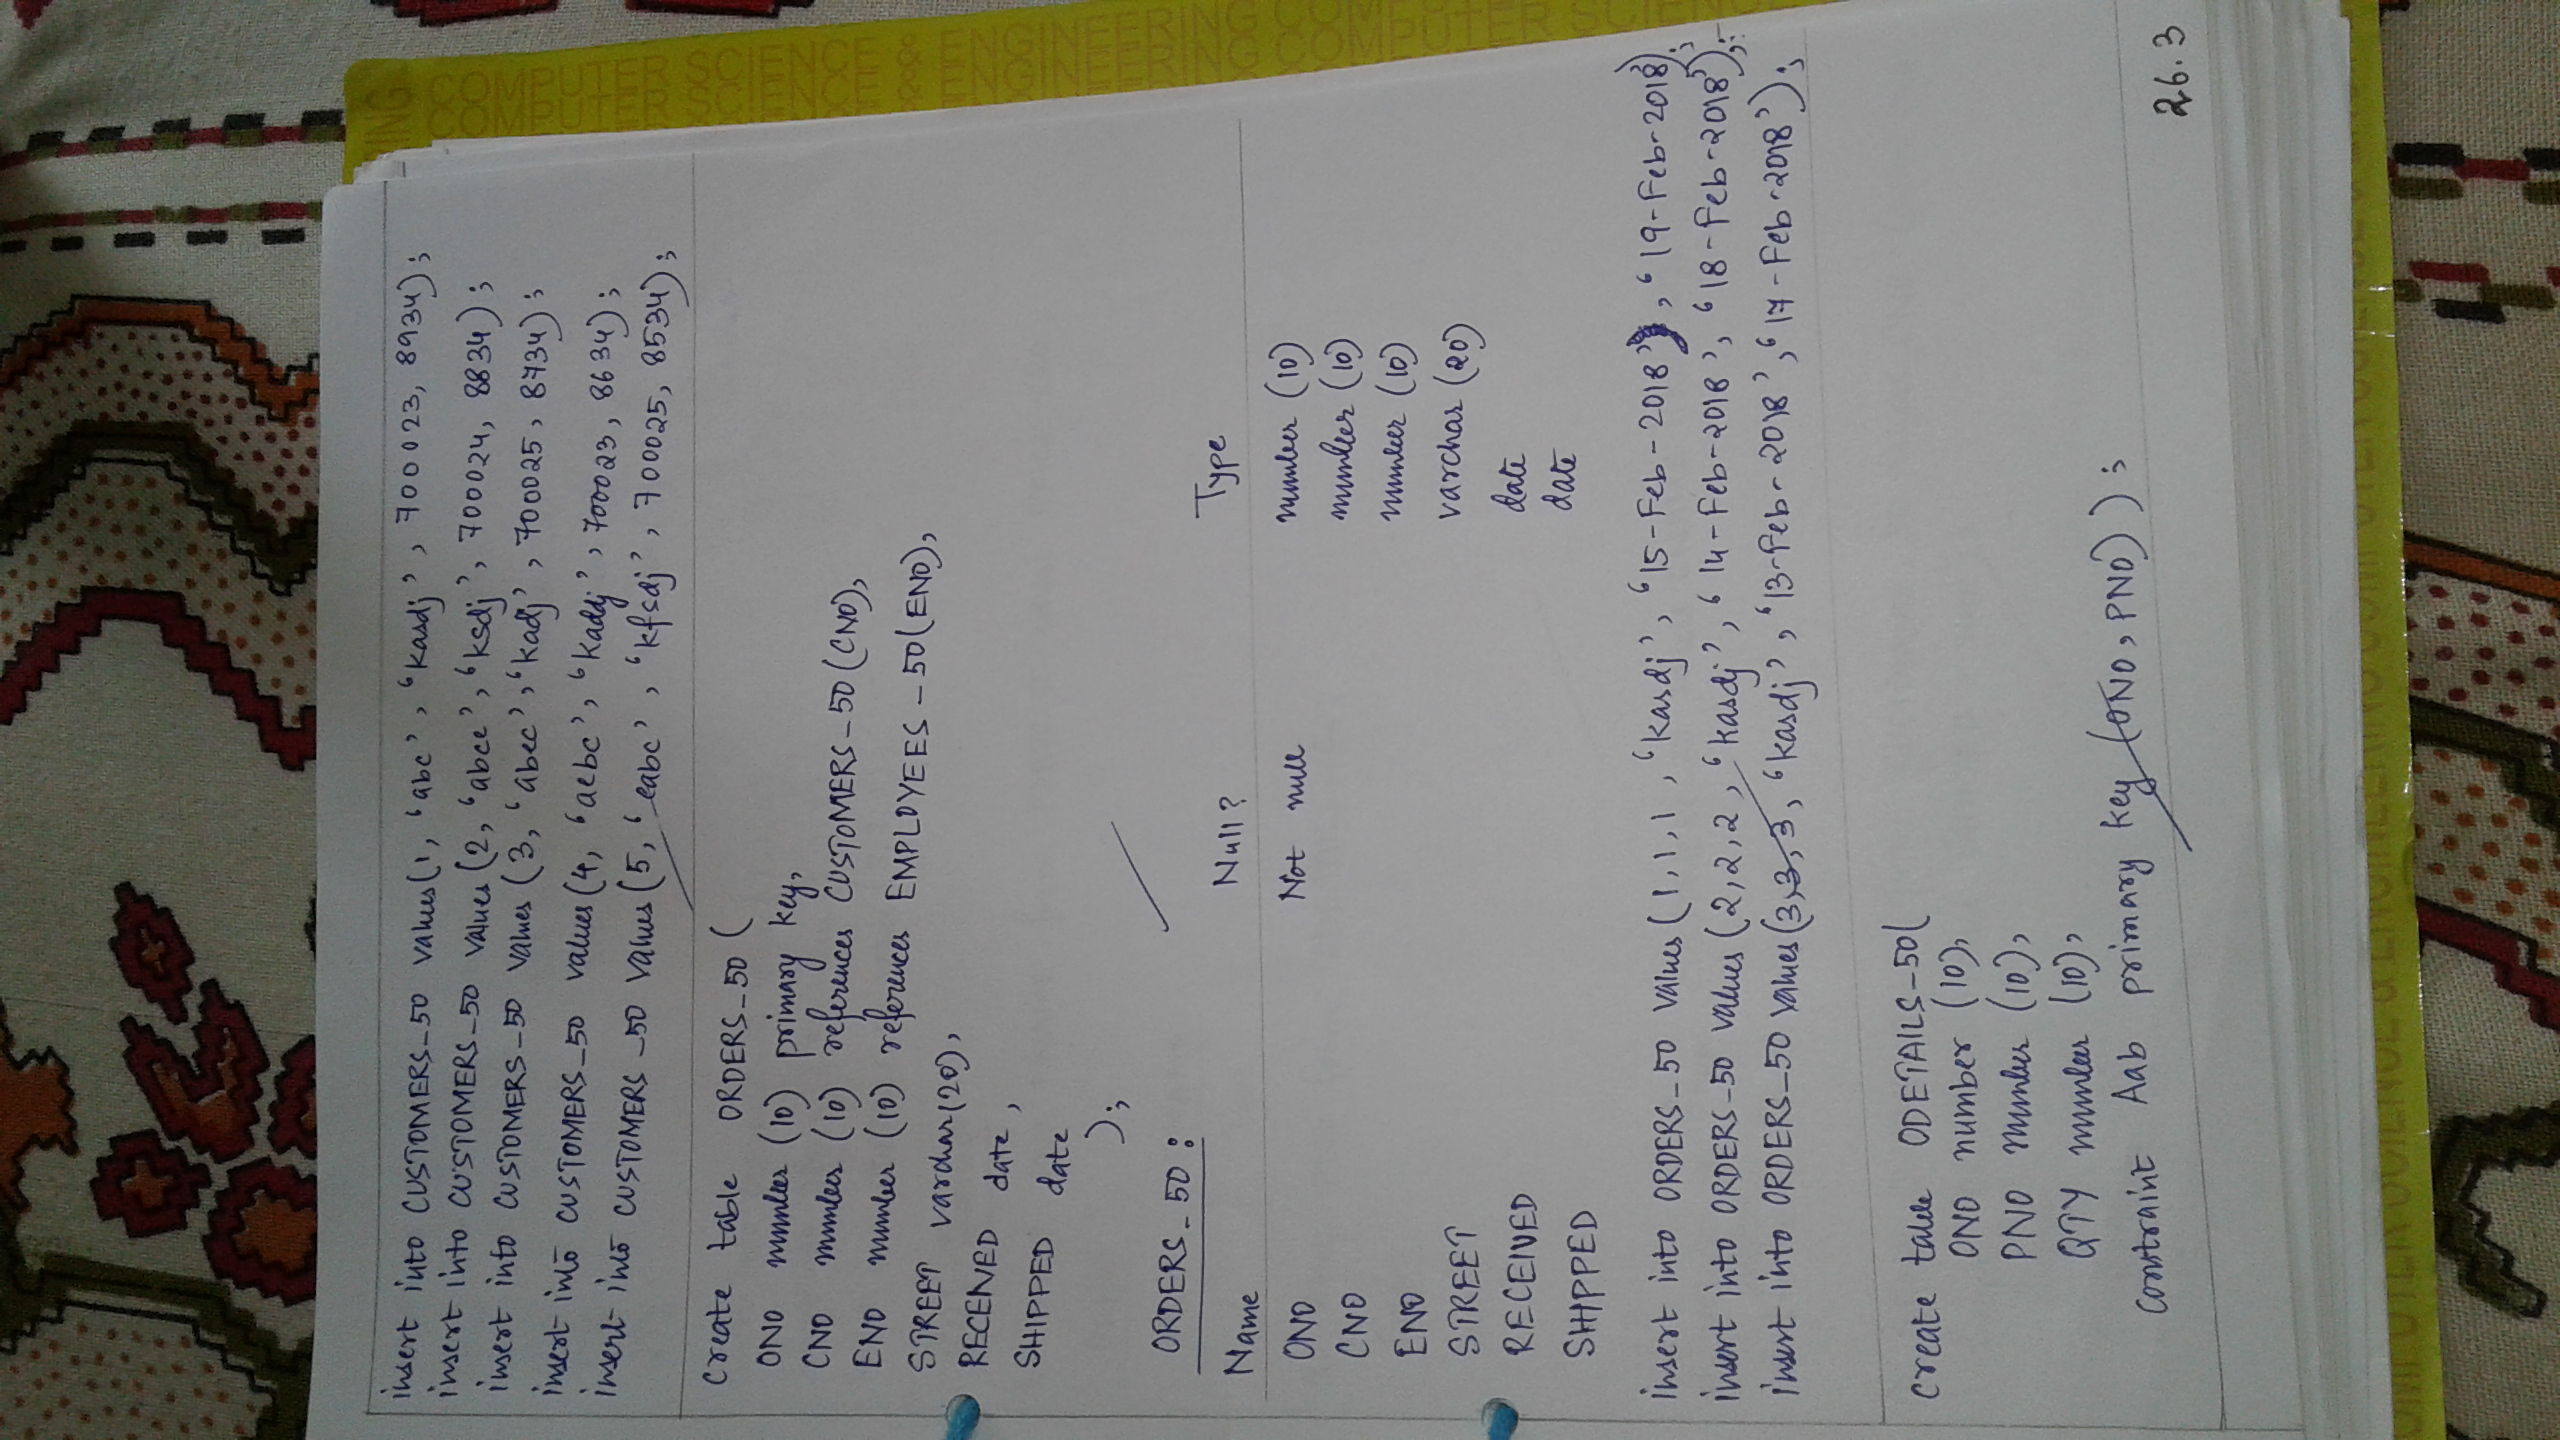 insert into CUSTOMERS_50 values(1, 'abc', 'kasdj', 700023, 8934);
insert into CUSTOMERS_50 values(2, 'abce', 'ksdj', 700024, 8834);
insert into CUSTOMERS_50 values(3, 'abec', 'kadj', 700025, 8734);
insert into CUSTOMERS_50 values(4, 'aebc', 'kaddj', 700023, 8634);
insert into CUSTOMERS_50 values(5, 'eabc', 'kfsdj', 700025, 8534);
Create table ORDERS_50 (
ONO number (10) primary key,
CNO number (10) references CUSTOMERS_50(CNO),
ENO number (10) references EMPLOYEES_50(ENO),
STREET varchar(20),
RECEIVED date,
SHIPPED date
);
ORDERS_50:
Name Null? Type
ONO Not null number (10)
CNO number (10)
ENO number (10)
STREET varchar (20)
RECEIVED date
SHIPPED date
insert into ORDERS_50 values(1,1,1, 'kasdj', '15-Feb-2018', '19-Feb-2018');
insert into ORDERS_50 values(2,2,2, 'kasdj', '14-Feb-2018', '18-Feb-2018');
insert into ORDERS_50 values(3,3,3, 'kasdj', '13-Feb-2018', '17-Feb-2018');
Create table ODETAILS_50(
ONO number (10),
PNO number (10),
QTY number (10),
constraint Aab primary key (ONO, PNO));
26.3
COMPUTER SCIENCE & ENGINEERING COMPUTER